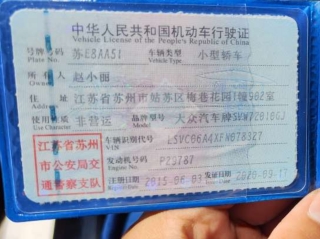 中华人民共和国机动车行驶证
Vehicle License of the People's Republic of China
号牌号码 苏E8AA51 车辆类型 小型轿车
Plate No. Vehicle Type
所有人 赵小丽
Owner
住址 江苏省苏州市姑苏区梅巷花园1幢902室
Address
使用性质 非营运 品牌型号 大众汽车牌
Use Character Model
江苏省苏州
市公安局交
通警察支队
车辆识别代号
VIN
发动机号码 P29787
Engine No.
注册日期 2015-06-03 发证日期 2020-09-17